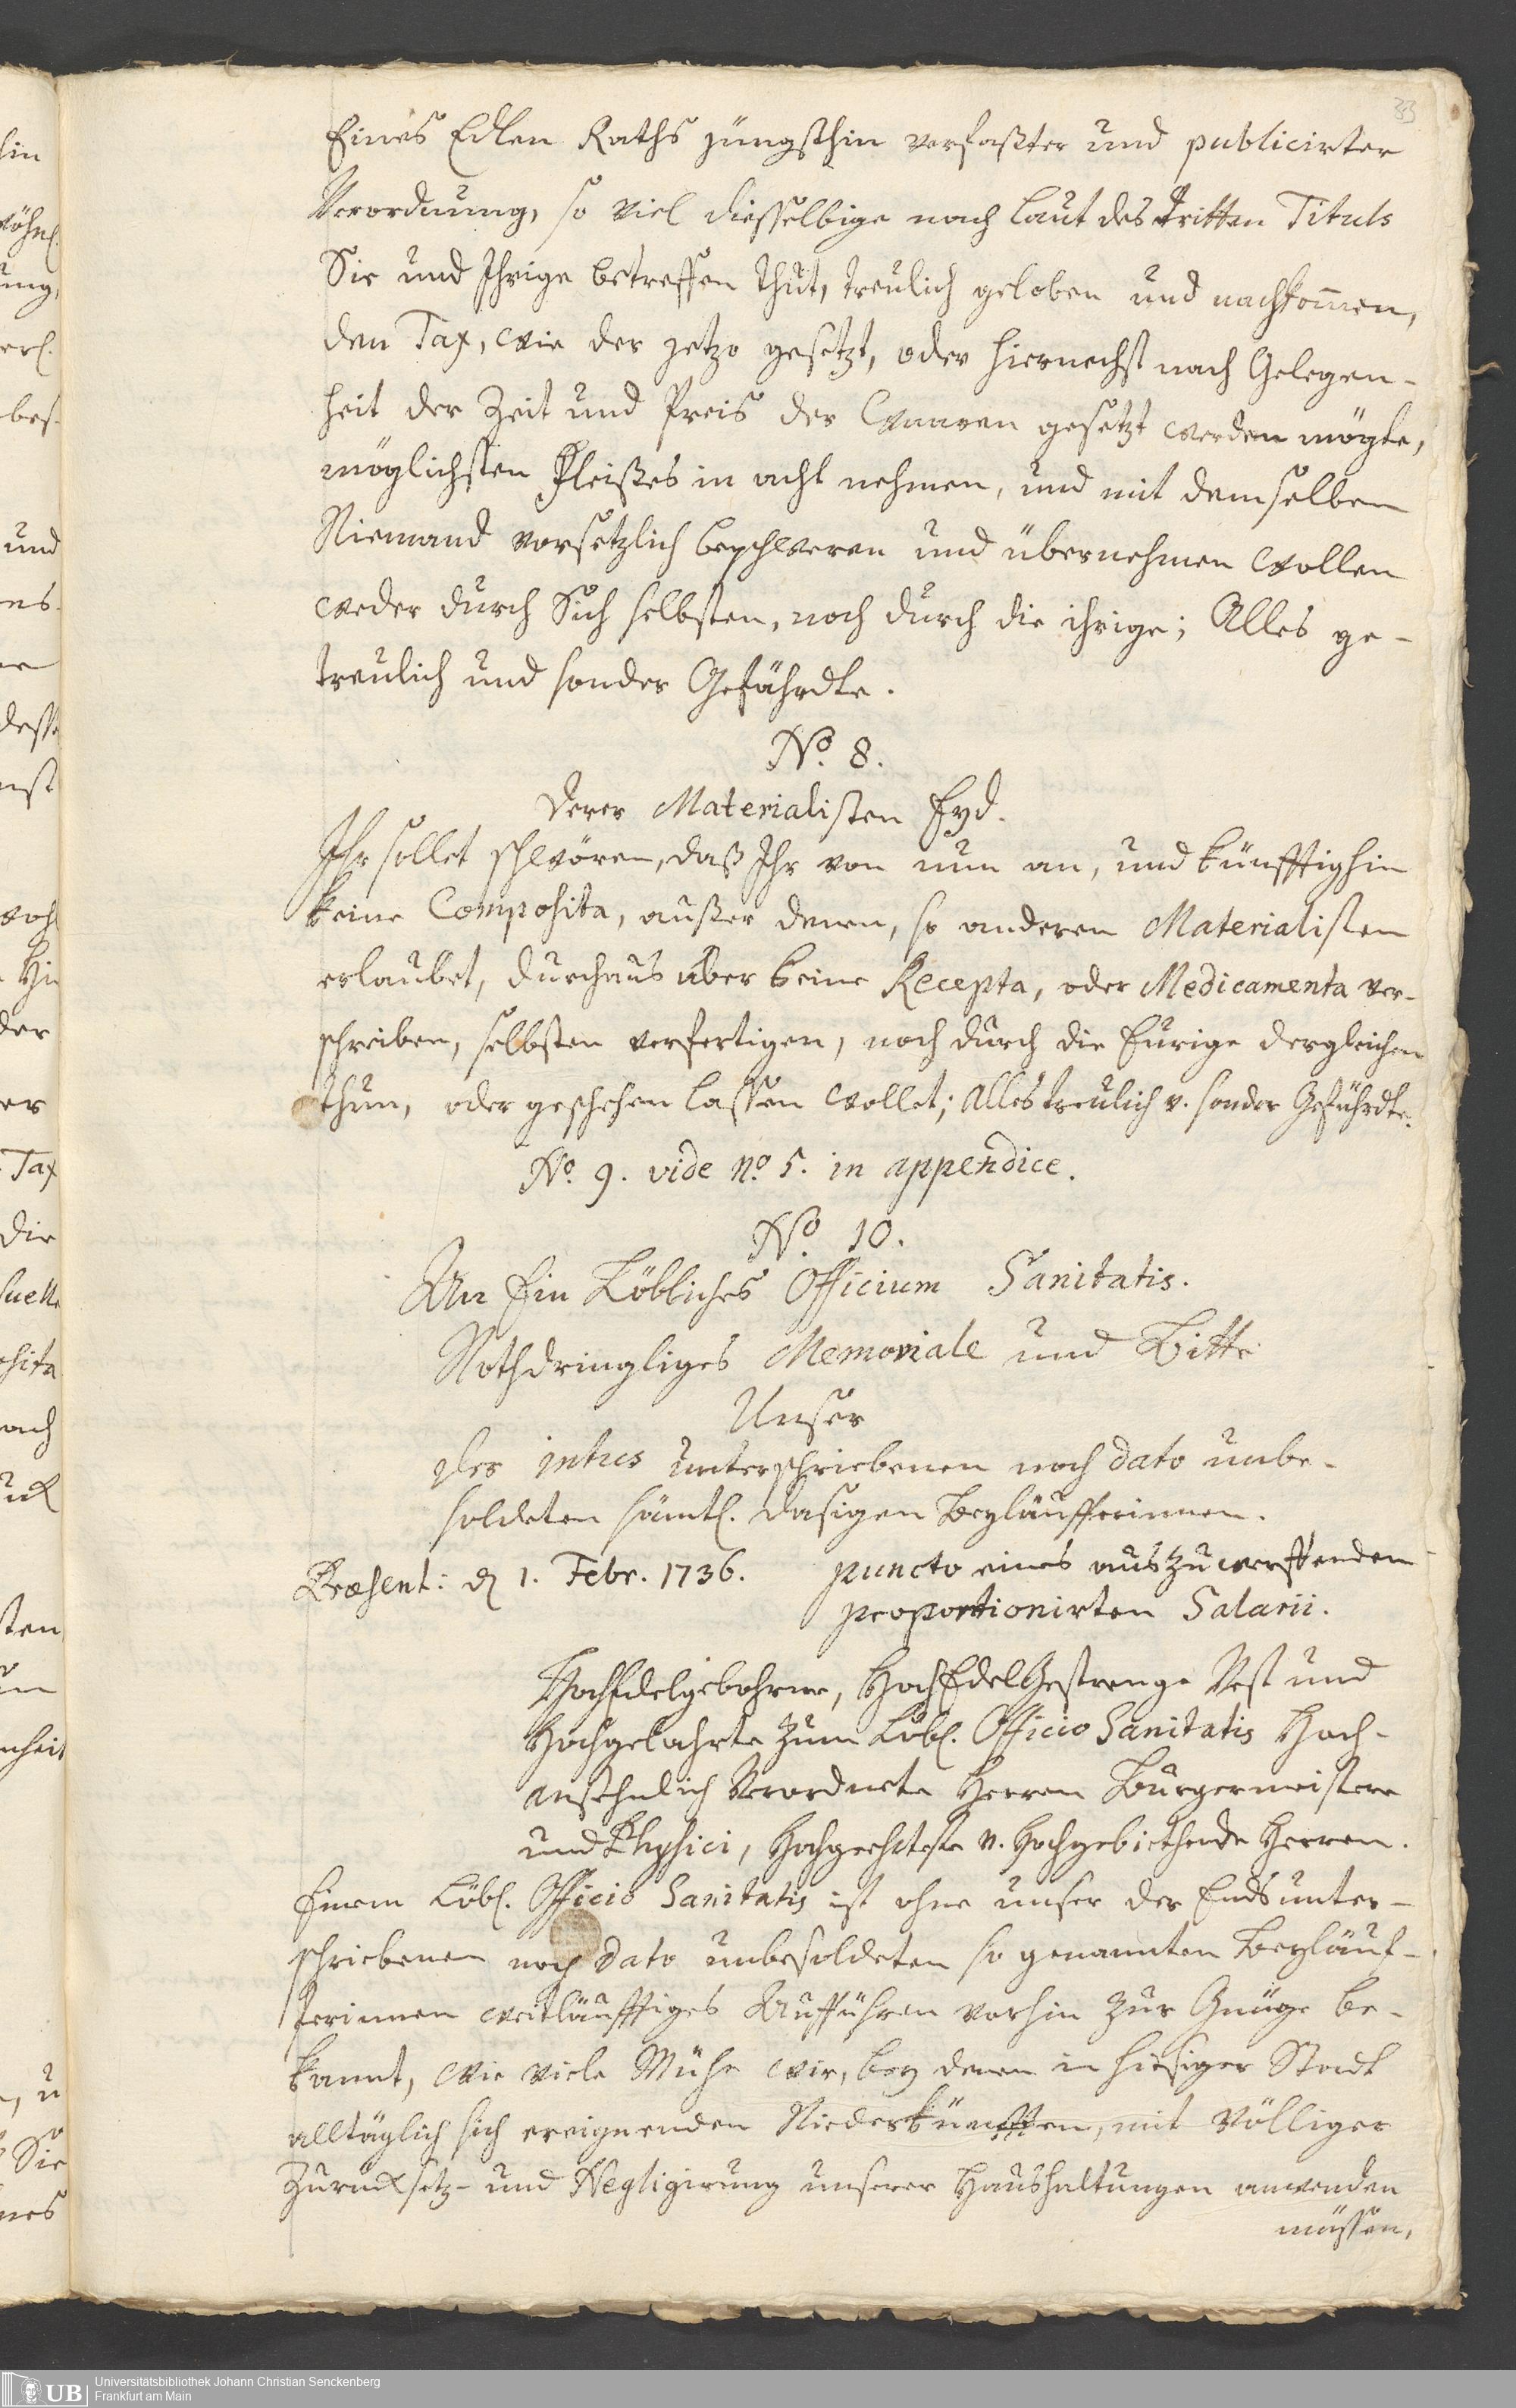 33
Eines Edlen Raths jüngsthin verfaßter und publicirter
Verordnung, so viel diesselbige nach laut des dritten Tituls
Sie und Ihrige betreffen thut, treulich geloben und nachkom̃en,
den Tax, wie der jetzo gesetzt, oder hiernechst nach Gelegen-
heit der Zeit und Preis der Waaren gesetzt werden mögte,
möglichsten Fleißes in acht nehmen, und mit demselben
Niemand vorsetzlich beschweren und übernehmen wollen
weder durch Sich selbsten, noch durch die ihrige; Alles ge-
treulich und sonder Gefährdte.
No. 8.
Derer Materialisten Eyd.
Ihr sollet schwören, daß Ihr von nun an, und künfftighin
keine Composita, außer denen, so anderen Materialisten
erlaubet, durchaus aber keine Recepta, oder Medicamenta ver-
schreiben, selbsten verfertigen, noch durch die Eurige dergleichen
thun, oder geschehen lassen wollet; Alles treulich u. sonder Gefährdte.
No. 9. vide no. 5. in appendice.
No. 10.
An Ein Löbliches Officium Sanitatis.
Nothdringliges Memoriale und Bitte
Unser
der intus unterschriebenen noch dato unbe-
soldeten sämtl. dasigen Beyläufferinnen.
Præsent: d. 1. Febr. 1736. puncto eines auszuwerffenden
proportionirten Salarii.
HochEdelgebohrne, HochEdelGestrenge Vest und
Hochgelahrte zum Löbl. Officio Sanitatis Hoch-
ansehnlich Verordnete Herren Burgermeistere
und Physici, Hochgeehrteste u. Hochgebiethende Herren.
Einem Löbl. Officio Sanitatis ist ohne unser der Endsunter-
schriebenen noch dato unbesoldeten so genannten Beyläuf-
ferinnen weitläufftiges Aufführen vorhin zur Gnüge be-
kannt, wie viele Mühe wir, bey denen in hiesiger Stadt
alltäglich sich ereignenden Niederkünfften, mit völliger
Zurücksetz- und Negligirung unserer Haushaltungen anwenden
müssen,
UB
Universitätsbibliothek Johann Christian Senckenberg
Frankfurt am Main